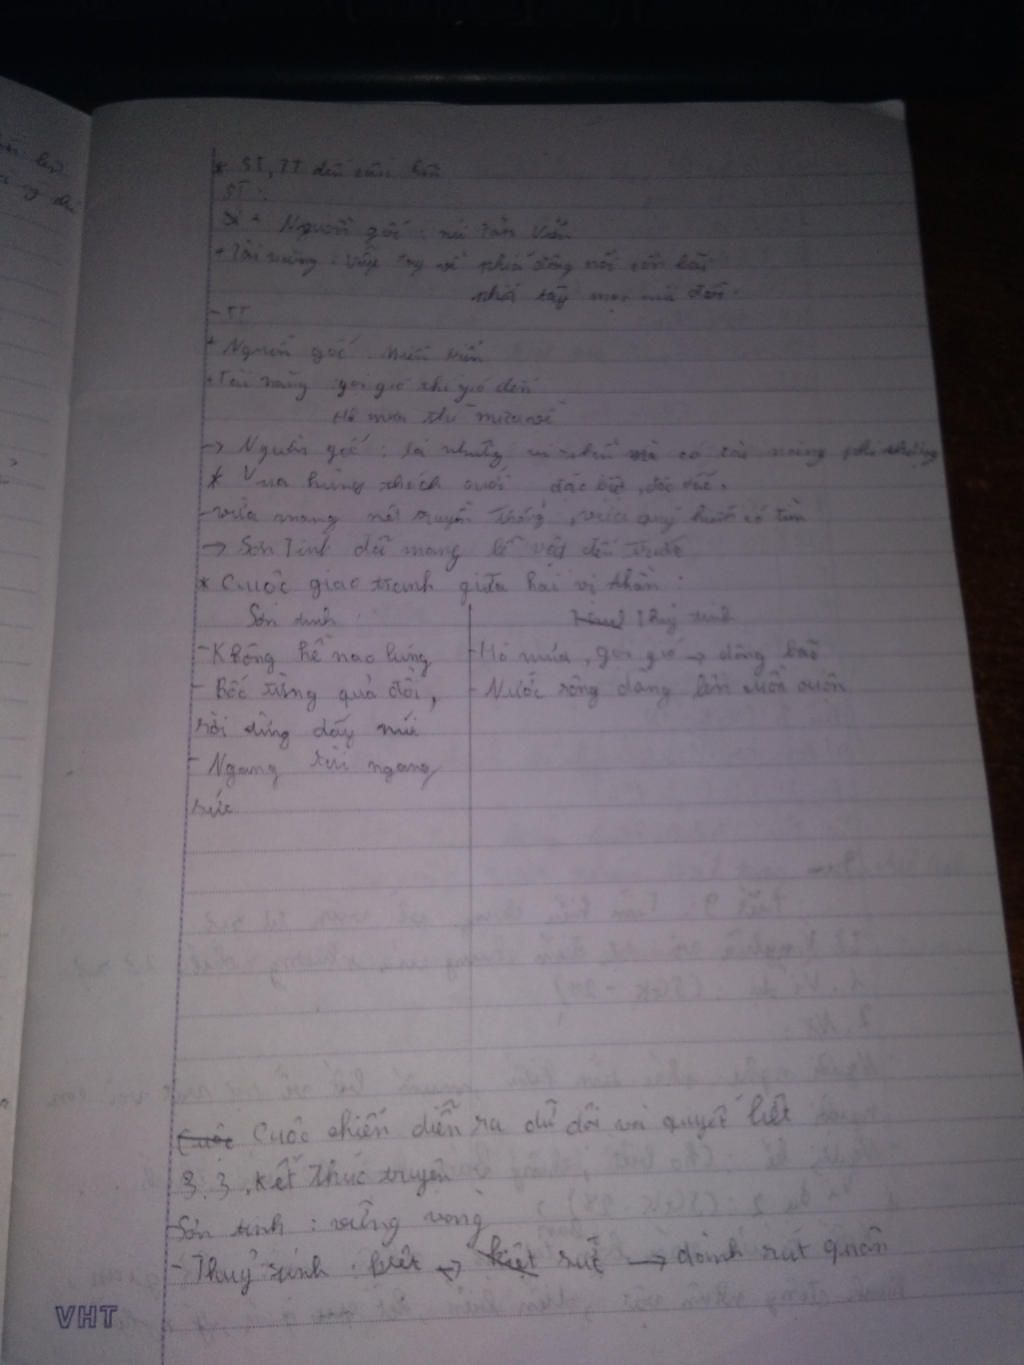 * ST, TT đến cầu hôn
ST:
+ Nguồn gốc: núi Tản Viên
+ Tài năng: vẫy tay về phía đông nổi cồn bãi
phía tây mọc núi đồi.
- TT
+ Nguồn gốc: miền biển
+ Tài năng gọi gió thì gió đến
Hô mưa thì mưa về
-> Nguồn gốc: là những vị thần có tài năng phi thường
* Vua hùng thách cưới đặc biệt, độc đáo.
- vừa mang nét truyền thống, vừa quý hiếm
-> Sơn Tinh đã mang lễ vật đến trước
* Cuộc giao tranh giữa hai vị thần:
Sơn tinh
Thuỷ tinh
- Không hề nao lúng
- Bốc từng quả đồi,
rời dãy núi
- Ngang ngang
sức
- Hô mưa, gọi gió -> dông bão
- Nước sông dâng lên cuồn cuộn
Cuộc Cuộc chiến diễn ra dữ dội và quyết liệt
3.3. Kết thúc truyện
- Sơn tinh: vững vàng
- Thuỷ tinh: kiệt -> đành rút quân
VHT